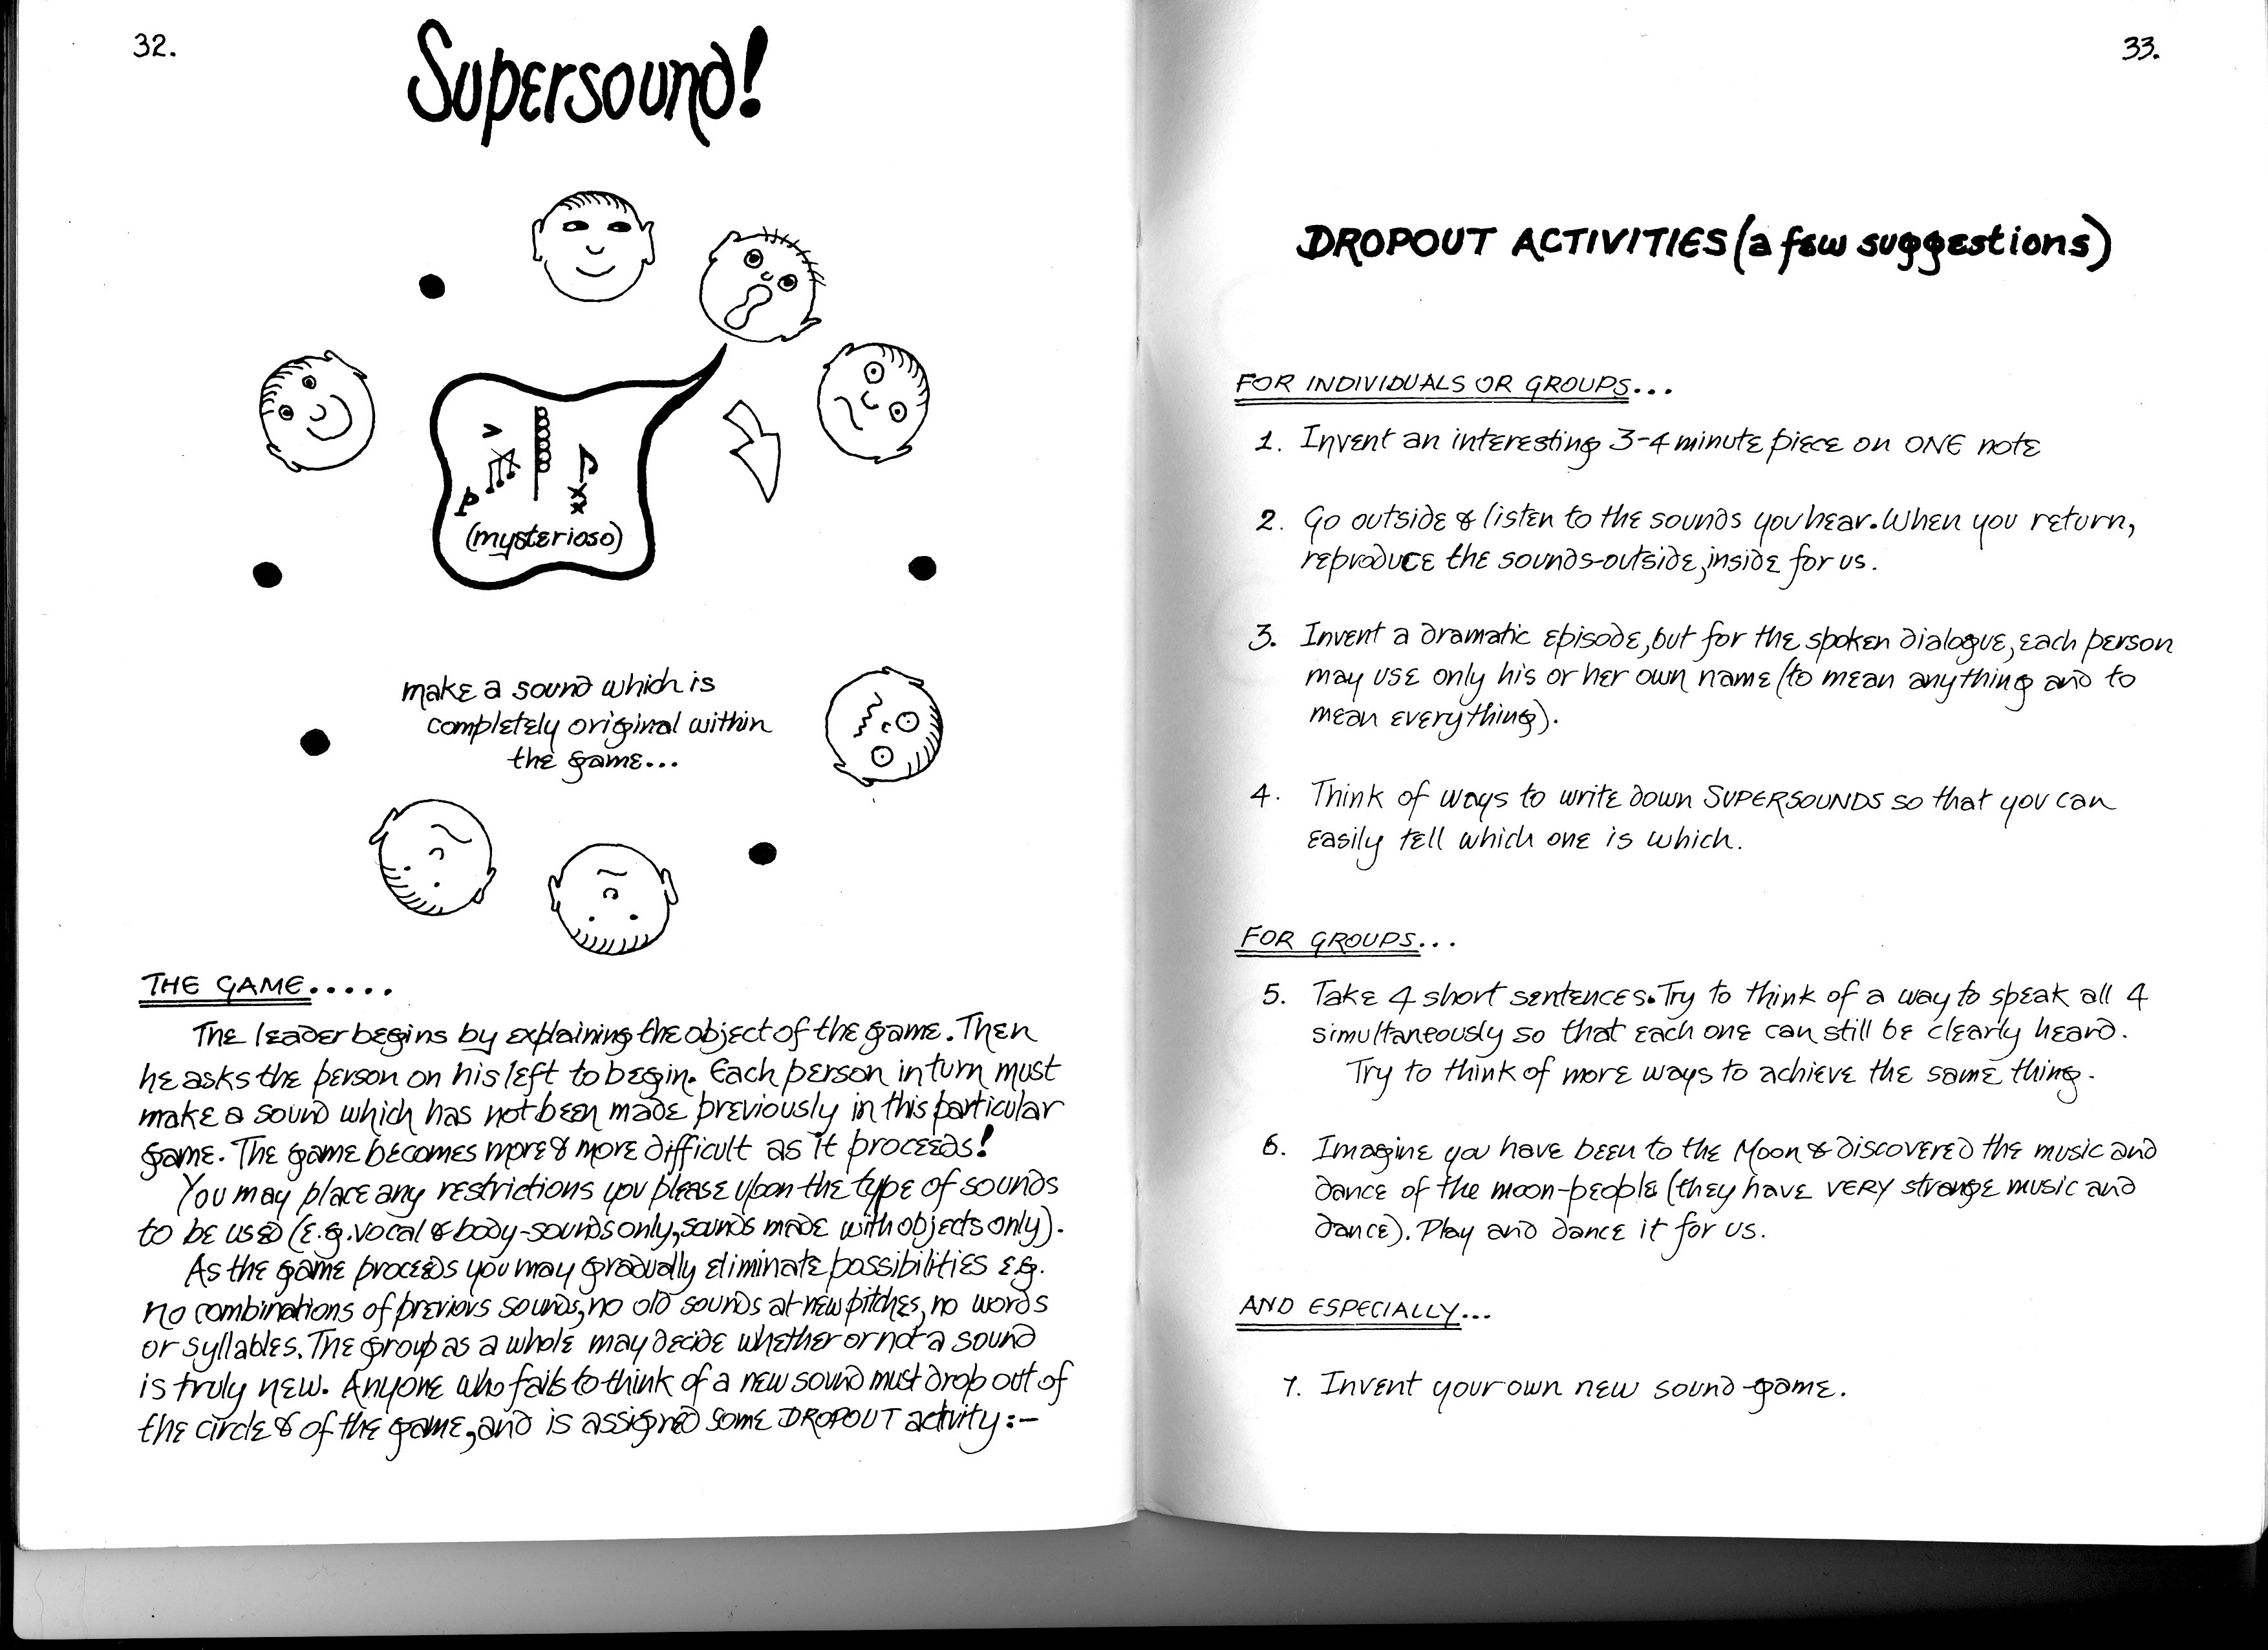 32.
Supersound!
p
(mysterioso)
make a sound which is
completely original within
the game...
THE GAME.....
The leader begins by explaining the object of the game. Then
he asks the person on his left to begin. Each person in turn must
make a sound which has not been made previously in this particular
game. The game becomes more & more difficult as it proceeds!
You may place any restrictions you please upon the type of sounds
to be used (e.g. vocal & body-sounds only, sounds made with objects only).
As the game proceeds you may gradually eliminate possibilities e.g.
no combinations of previous sounds, no old sounds at new pitches, no words
or syllables. The group as a whole may decide whether or not a sound
is truly new. Anyone who fails to think of a new sound must drop out of
the circle & of the game, and is assigned some DROPOUT activity:-
33.
DROPOUT ACTIVITIES (a few suggestions)
FOR INDIVIDUALS OR GROUPS...
1. Invent an interesting 3-4 minute piece on ONE note
2. Go outside & listen to the sounds you hear. When you return,
reproduce the sounds-outside, inside for us.
3. Invent a dramatic episode, but for the spoken dialogue, each person
may use only his or her own name (to mean anything and to
mean everything).
4. Think of ways to write down SUPERSOUNDS so that you can
easily tell which one is which.
FOR GROUPS...
5. Take 4 short sentences. Try to think of a way to speak all 4
simultaneously so that each one can still be clearly heard.
Try to think of more ways to achieve the same thing.
6. Imagine you have been to the Moon & discovered the music and
dance of the moon-people (they have VERY strange music and
dance). Play and dance it for us.
AND ESPECIALLY...
7. Invent your own new sound-game.